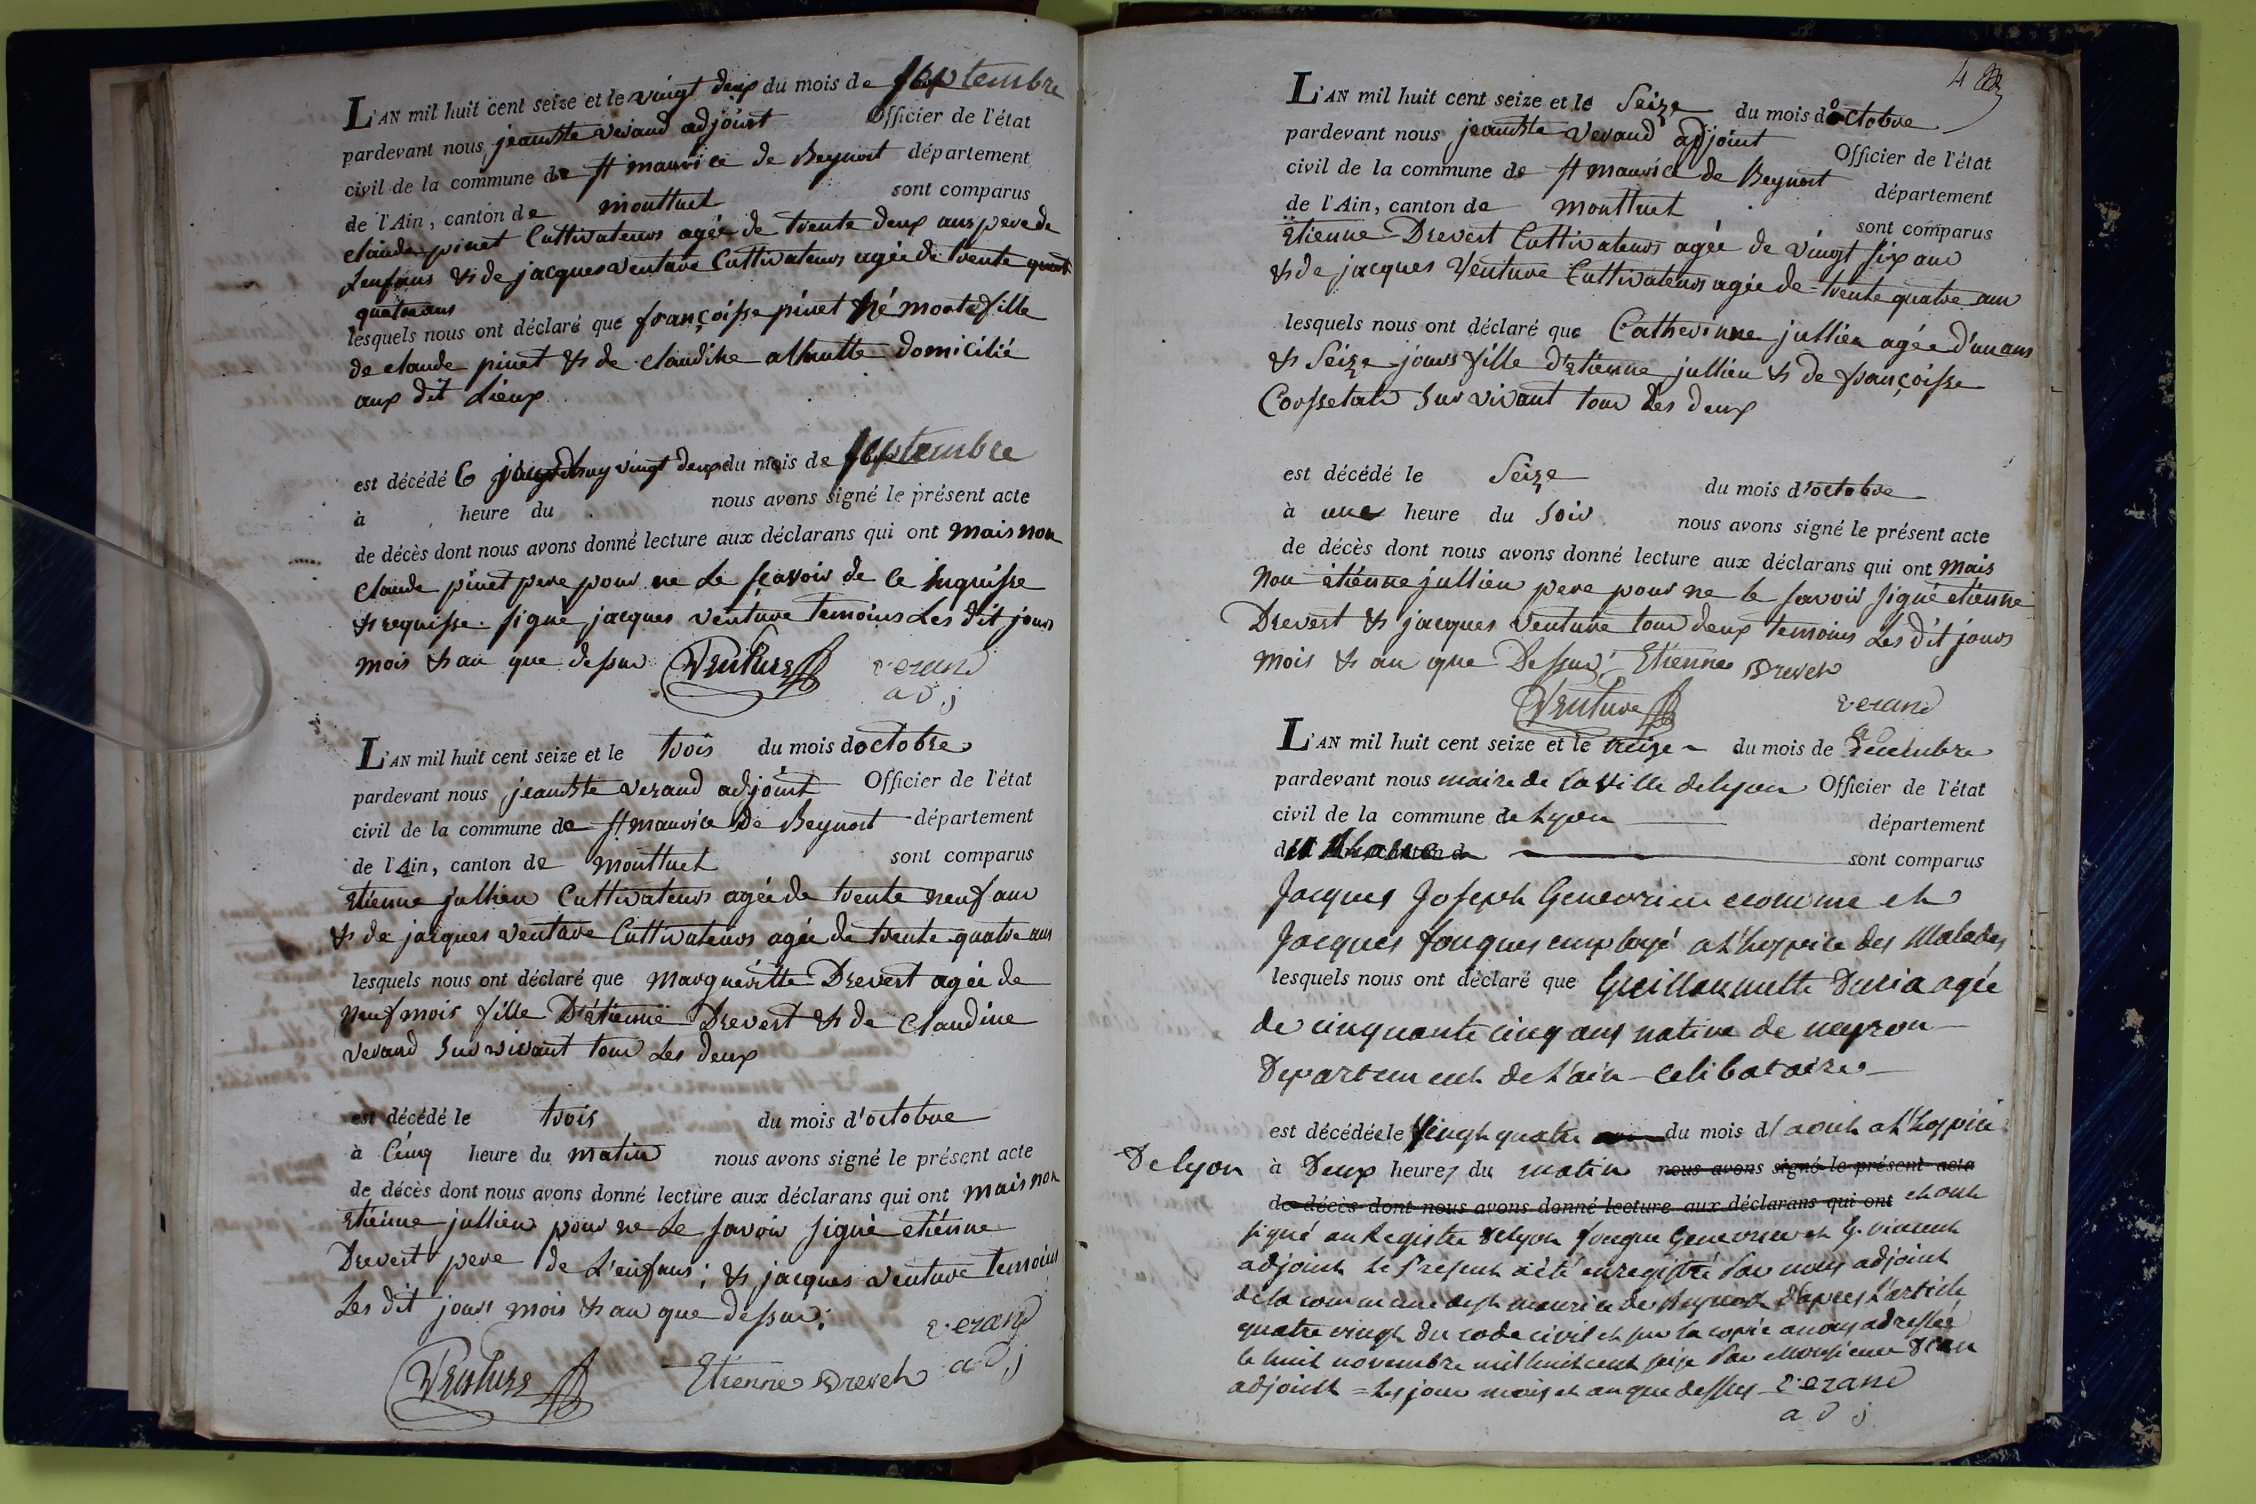 L'AN mil huit cent seize et le vingt deux du mois de Septembre
pardevant nous, jeanbte verand adjoint Officier de l'état
civil de la commune de st maurice de Beynost département
de l'Ain, canton de montluel sont comparus
claude pinet Cultivateurs agée de trente deux ans pere de
Lenfans & de jacques venture Cultivateurs agée de trente quat
quatre ans
lesquels nous ont déclaré que françoisse pinet né morte fille
de claude pinet & de claudine domicilié
aux dit Lieux
est décédé le jourdhuy vingt deux du mois de septembre
à heure du nous avons signé le présent acte
de décès dont nous avons donné lecture aux déclarans qui ont mais non
claude pinet pere pour ne Le scavoir de ce
& requisse signé jacques venture temoins Les dit jours
mois & an que dessus Venture verand
adj
L'AN mil huit cent seize et le trois du mois doctobre
pardevant nous jeanbte verand adjoint Officier de l'état
civil de la commune de st maurice de Beynost département
de l'Ain, canton de montluel sont comparus
Etienne jullien Cultivateurs agée de trente neuf ans
& de jacques venture Cultivateurs agée de trente quatre ans
lesquels nous ont déclaré que marguéritte Drevest agée de
neuf mois fille D'étienne Drevest & de Claudine
verand survivant tous Les deux
est décédé le trois du mois d'octobre
à Cinq heure du matin nous avons signé le présent acte
de décès dont nous avons donné lecture aux déclarans qui ont mais non
Etienne jullien pour ne Le savoir signé etiénne
Drevest pere de L'enfans; & jacques venture temoins
Les dit jours mois & an que dessus;
verand
Venture Etienne Drevet adj
4
L'AN mil huit cent seize et le Seize du mois doctobre
pardevant nous jeanbte verand adjoint Officier de l'état
civil de la commune de st maurice de Beynost département
de l'Ain, canton de montluel sont comparus
Etienne Drevest Cultivateurs agée de vingt six ans
& de jacques Venture Cultivateurs agée de trente quatre ans
lesquels nous ont déclaré que Catherinne jullien agée d'un ans
& Seize jours fille d'Etienne jullien & de françoisse
survivant tous Les deux
est décédé le Seize du mois d'octobre
à une heure du soir nous avons signé le présent acte
de décès dont nous avons donné lecture aux déclarans qui ont mais
non étiénne jullien pere pour ne le savoir signé etiénne
Drevest & jacques venture tous deux temoins Les dit jours
mois & an que Dessus; Etienne Drevet
Venture verand
L'AN mil huit cent seize et le treize du mois de Decembre
pardevant nous maire de la ville de lyon Officier de l'état
civil de la commune de Lyon département
du Rhone sont comparus
Jacques Joseph Genevrier econome et
Jacques fouques employé a L'hospice des Malades
lesquels nous ont déclaré que Guillaumette Duria agée
de cinquante cinq ans native de neyron
Departement de L'ain celibataire
est décédée le Vingt quatre du mois d'aout a L'hospice
De lyon à Deux heures du matin nous avons signé le présent acte
de décès dont nous avons donné lecture aux déclarans qui ont et ont
signé au Registre de lyon fouque Genevrier et G. vincent
adjoint Le Present a été enregistré Par nous adjoint
de la commune de st maurice de Beynost d'apres L'article
quatre vingt du code civil et sur la copie a nous adressée
le huit novembre mil huit cent seize Par Monsieur
adjoint = Les jour mois et an que dessus verand
adj